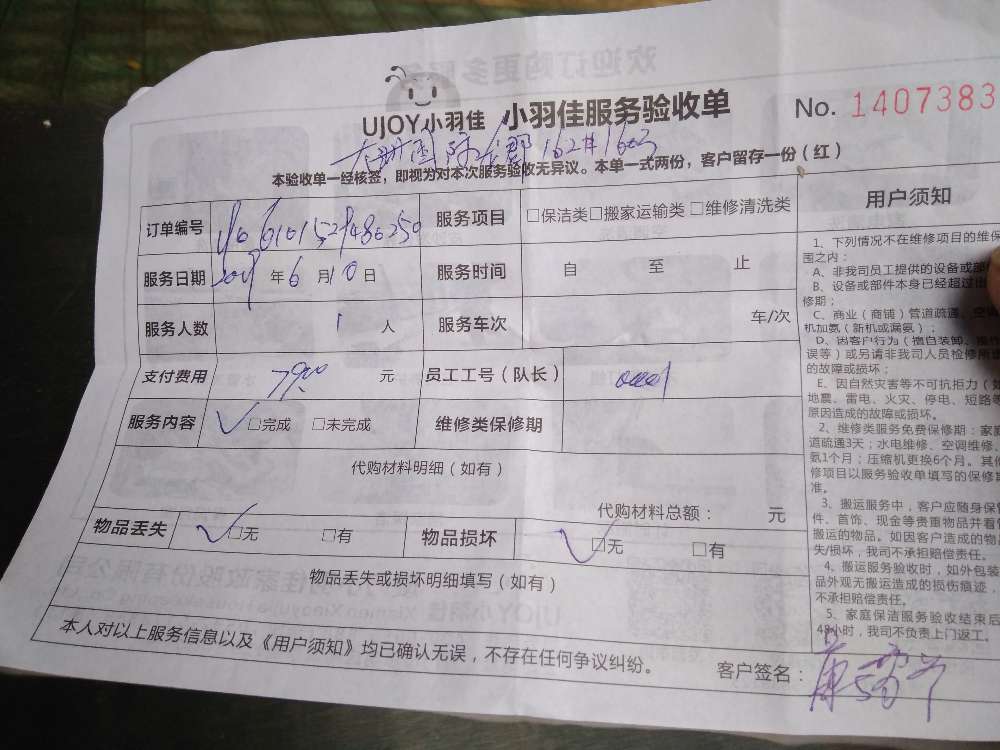 UJOY小羽佳 小羽佳服务验收单 No. 1407383
本验收单一经核签，即视为对本次服务验收无异议。本单一式两份，客户留存一份（红）
订单编号 服务项目 □保洁类□搬家运输类□维修清洗类
服务日期 年 6 月 10 日 服务时间 自 至 止
服务人数 1 人 服务车次 车/次
支付费用 元 员工工号（队长）
服务内容 □完成 □未完成 维修类保修期
代购材料明细（如有）
代购材料总额： 元
物品丢失 □无 □有 物品损坏 □无 □有
物品丢失或损坏明细填写（如有）
本人对以上服务信息以及《用户须知》均已确认无误，不存在任何争议纠纷。
客户签名：
用户须知
1、下列情况不在维修项目的维保
围之内：
A、非我司员工提供的设备或部
B、设备或部件本身已经超过
修期；
C、商业（商铺）管道疏通、空
机加氨（新机或漏氨）；
D、因客户行为（擅自装卸、操
误等）或另请非我司人员检修所
的故障或损坏；
E、因自然灾害等不可抗拒力（如
地震、雷电、火灾、停电、短路等
原因造成的故障或损坏。
2、维修类服务免费保修期：家庭
道疏通3天；水电维修、空调维修、
氨1个月；压缩机更换6个月。其他
修项目以服务验收单填写的保修期
准。
3、搬运服务中，客户应随身保管
件、首饰、现金等贵重物品并看
搬运的物品。如因客户造成的物品
失/损坏，我司不承担赔偿责任。
4、搬运服务验收时，如外包装
品外观无搬运造成的损伤痕迹，
不承担赔偿责任。
5、家庭保洁服务验收结束后
48小时，我司不负责上门返工。